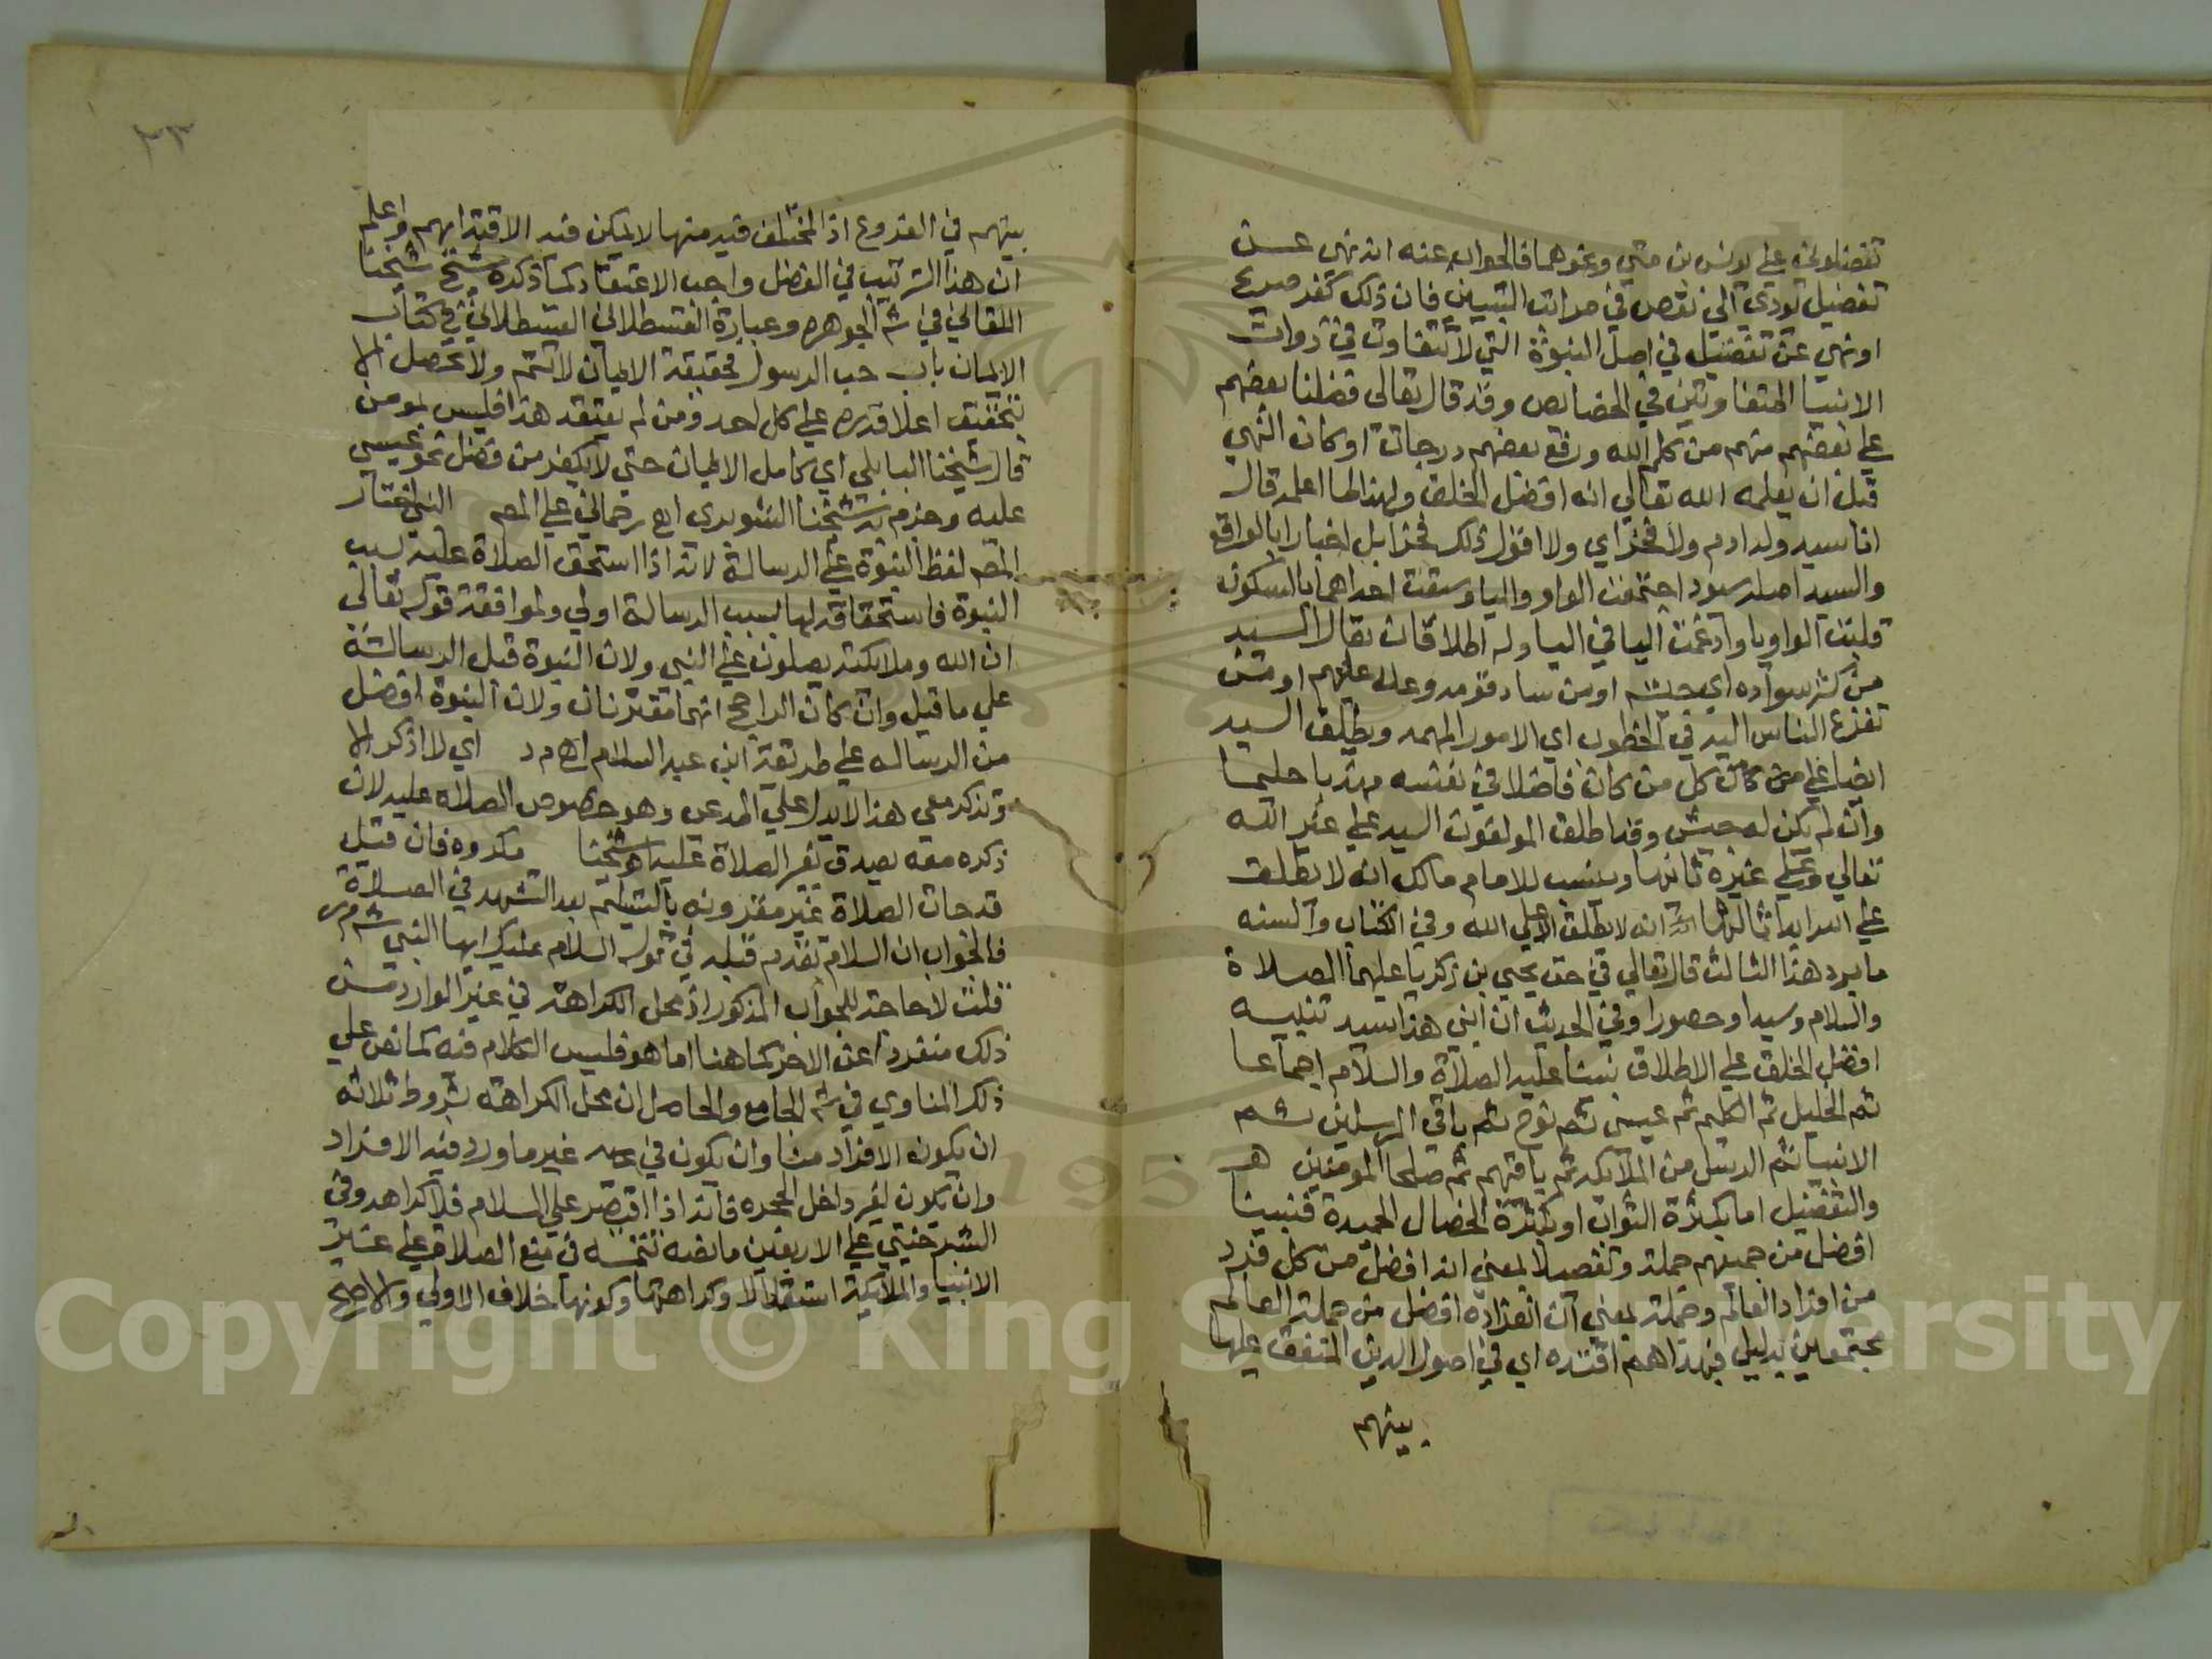 تفضلوني علي يونس بن متي ونحوهما فالجواب عنه انه نهي عن
تفضيل يودي الي نقص في مراتب النبيين فان ذلك كفر صريح
او نهي عن تفضيل في اصل النبوة التي لا تتفاوت في ذوات
الانبيا المتفاوتين في الخصايص وقد قال تعالي فضلنا بعضهم
علي بعض منهم من كلم الله ورفع بعضهم درجات او كان النهي
قبل ان يعلمه الله تعالي انه افضل الخلق ولهذا لما اعلمه قال
انا سيد ولد ادم ولا فخر اي ولا اقول ذلك فخرا بل اخبارا بالواقع
والسيد اصله سيود اجتمعت الواو واليا وسبقت احداهما بالسكون
قلبت الواو يا وادغمت اليا في اليا وله اطلاقات يقال السيد
من كثر سواده اي جيشه او من ساد قومه وعلا عليهم او من
تفزع الناس اليه في الخطوب اي الامور المهمه ويطلق السيد
ايضا علي كل من كان فاضلا في نفسه مهذبا حليما
وان لم يكن له جيش وقد اطلق المولفون السيد علي غير الله
تعالي وعلي غيره ثانيها وينسب للامام مالك انه لا يطلق
علي الله ابدا ثالثها انه لا يطلق الا علي الله وفي الكتاب والسنه
ما يرد هذا الثالث قال تعالي في حق يحيي بن زكريا عليهما الصلاة
والسلام وسيدا وحصورا وفي الحديث ان ابني هذا سيد تنبيه
افضل الخلق علي الاطلاق نبينا عليه الصلاة والسلام اجماعا
ثم الخليل ثم الكليم ثم عيسي ثم نوح ثم باقي المرسلين ثم
الانبيا ثم الرسل من الملايكه ثم باقيهم ثم صلحا المومنين
والتفضيل اما بكثرة الثواب او بكثرة الخصال الحميدة فنبينا
افضل من جميعهم جملة وتفصيلا بمعني انه افضل من كل فرد
من افراد العالم وجملة بمعني ان انفراده افضل من جملة العالم
مجتمعين بدليل فبهداهم اقتده اي في اصول الدين المتفق عليها
بينهم
٢٣
بينهم في الفروع اذ المختلف فيه منها لا يمكن فيه الاقتدا بهم واعلم
ان هذا الترتيب في الفضل واجب الاعتقاد كما ذكره شيخ شيخنا
اللقاني في ش الجوهره وعبارة القسطلاني في كتاب
الايمان باب حب الرسول فحقيقة الايمان لا تتم ولا تحصل الا
بتحقيق اعلا قدره علي كل احد ومن لم يعتقد هذا فليس بمومن
قال شيخنا البابلي اي كامل الايمان حتي لا يكفر من فضل نحو عيسي
عليه وجزم به شيخنا الشوبري اع رحماني علي المص النبي اختار
المص لفظ النبوة علي الرسالة لانه اذا استحق الصلاة عليه بسبب
النبوة فاستحقاقه لها بسبب الرسالة اولي ولموافقة قوله تعالي
ان الله وملايكته يصلون علي النبي ولان النبوة قبل الرسالة
علي ما قيل وان كان الراجح انهما مقترنان ولان النبوة افضل
من الرساله علي طريقة ابن عبد السلام اي لا اذكر الا
وتذكر معي هذا لا يدل علي المدعي وهو خصوص الصلاه عليه لان
ذكره معه يصدق بغير الصلاة عليه شيخنا مكروه فان قيل
قد جات الصلاة غير مقرونه بالتسليم بعد التشهد في الصلاة
فالجواب ان السلام تقدم قبله في قوله السلام عليك ايها النبي ش م ر
قلت لا حاجة للجواب المذكور اذ محل الكراهة في غير الوارد
ذلك منفردا عن الاخر كما هنا اما هو فليس الكلام فيه كما نص علي
ذلك المناوي في ش الجامع والحاصل ان محل الكراهة بشروط ثلاثه
ان يكون الافراد منا وان يكون في غير ما ورد فيه الافراد
وان يكون لغير داخل الحجره فانه اذا اقتصر علي السلام فلا كراهه وفي
الشبرخيتي علي الاربعين ما نصه تتمه في منع الصلاة علي غير
الانبيا والملايكة استقلالا وكراهتها وكونها خلاف الاولي والاصح